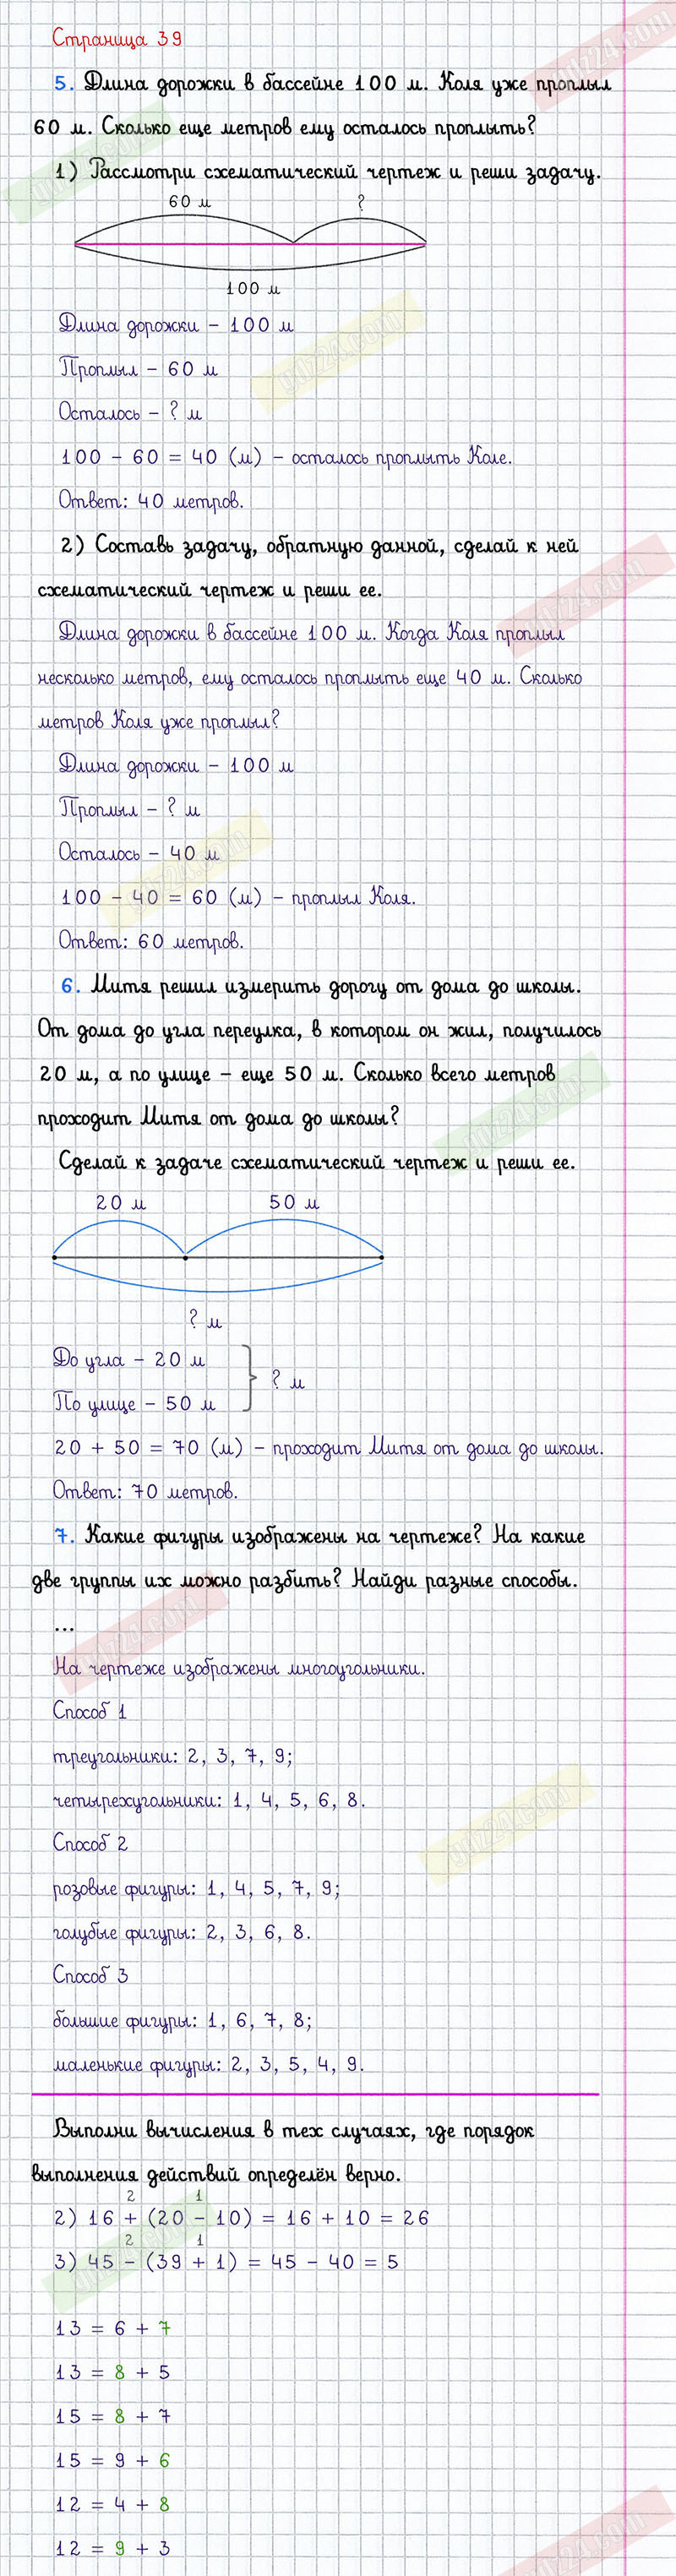 Страница 39
5. Длина дорожки в бассейне 100 м. Коля уже проплыл
60 м. Сколько еще метров ему осталось проплыть?
1) Рассмотри схематический чертеж и реши задачу.
60 м ?
100 м
Длина дорожки – 100 м
Проплыл – 60 м
Осталось – ? м
100 – 60 = 40 (м) – осталось проплыть Коле.
Ответ: 40 метров.
2) Составь задачу, обратную данной, сделай к ней
схематический чертеж и реши ее.
Длина дорожки в бассейне 100 м. Когда Коля проплыл
несколько метров, ему осталось проплыть еще 40 м. Сколько
метров Коля уже проплыл?
Длина дорожки – 100 м
Проплыл – ? м
Осталось – 40 м
100 – 40 = 60 (м) – проплыл Коля.
Ответ: 60 метров.
6. Митя решил измерить дорогу от дома до школы.
От дома до угла переулка, в котором он жил, получилось
20 м, а по улице – еще 50 м. Сколько всего метров
проходит Митя от дома до школы?
Сделай к задаче схематический чертеж и реши ее.
20 м 50 м
? м
До угла – 20 м
По улице – 50 м
? м
20 + 50 = 70 (м) – проходит Митя от дома до школы.
Ответ: 70 метров.
7. Какие фигуры изображены на чертеже? На какие
две группы их можно разбить? Найди разные способы.
...
На чертеже изображены многоугольники.
Способ 1
треугольники: 2, 3, 7, 9;
четырехугольники: 1, 4, 5, 6, 8.
Способ 2
розовые фигуры: 1, 4, 5, 7, 9;
голубые фигуры: 2, 3, 6, 8.
Способ 3
большие фигуры: 1, 6, 7, 8;
маленькие фигуры: 2, 3, 5, 4, 9.
Выполни вычисления в тех случаях, где порядок
выполнения действий определён верно.
2 1
2) 16 + (20 – 10) = 16 + 10 = 26
2 1
3) 45 – (39 + 1) = 45 – 40 = 5
13 = 6 + 7
13 = 8 + 5
15 = 8 + 7
15 = 9 + 6
12 = 4 + 8
12 = 9 + 3